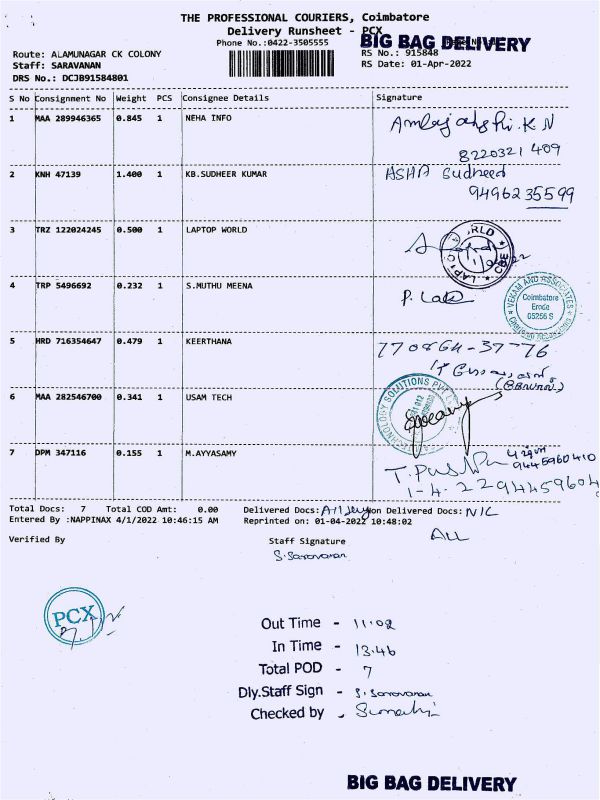 THE PROFESSIONAL COURIERS, Coimbatore
Delivery Runsheet - PCX
BIG BAG DELIVERY
Phone No.:0422-3505555
Route: ALAMUNAGAR CK COLONY
RS No.: 915848
Staff: SARAVANAN
RS Date: 01-Apr-2022
DRS No.: DCJB91584801
S No Consignment No Weight PCS Consignee Details Signature
1 MAA 289946365 0.845 1 NEHA INFO
8220321 409
2 KNH 47139 1.400 1 KB.SUDHEER KUMAR ASHA Sudheer
94962 35599
3 TRZ 122024245 0.500 1 LAPTOP WORLD
4 TRP 5496692 0.232 1 S.MUTHU MEENA
VEKAM AND ASSOCIATES
Coimbatore
Erode
05256 S
5 HRD 716354647 0.479 1 KEERTHANA 770864-37776
6 MAA 282546700 0.341 1 USAM TECH
TECHNOLOGY SOLUTIONS PVT
7 DPM 347116 0.155 1 M.AYYASAMY
9445960410
T. Pushpa
1-4.22 94459604
Total Docs: 7 Total COD Amt: 0.00 Delivered Docs: Non Delivered Docs: NIL
Entered By :NAPPINAX 4/1/2022 10:46:15 AM Reprinted on: 01-04-2022 10:48:02
ALL
Verified By Staff Signature
S. Saravanan
PCX
Out Time - 11:02
In Time - 13.46
Total POD - 7
Dly.Staff Sign - S. Saravanan
Checked by -
BIG BAG DELIVERY